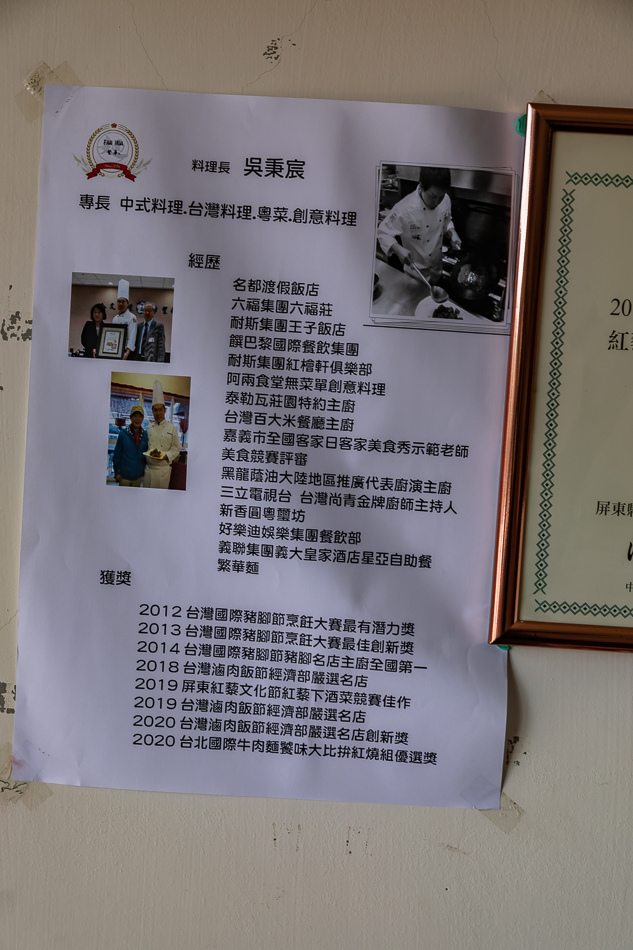 料理長 吳秉宸
專長 中式料理.台灣料理.粵菜.創意料理
經歷
名都渡假飯店
六福集團六福莊
耐斯集團王子飯店
饌巴黎國際餐飲集團
耐斯集團紅檜軒俱樂部
阿兩食堂無菜單創意料理
泰勒瓦莊園特約主廚
台灣百大米餐廳主廚
嘉義市全國客家日客家美食秀示範老師
美食競賽評審
黑龍蔭油大陸地區推廣代表廚演主廚
三立電視台 台灣尚青金牌廚師主持人
新香圓粵璽坊
好樂迪娛樂集團餐飲部
義聯集團義大皇家酒店星亞自助餐
繁華麵
獲獎
2012 台灣國際豬腳節烹飪大賽最有潛力獎
2013 台灣國際豬腳節烹飪大賽最佳創新獎
2014 台灣國際豬腳節豬腳名店主廚全國第一
2018 台灣滷肉飯節經濟部嚴選名店
2019 屏東紅藜文化節紅藜下酒菜競賽佳作
2019 台灣滷肉飯節經濟部嚴選名店
2020 台灣滷肉飯節經濟部嚴選名店創新獎
2020 台北國際牛肉麵饕味大比拚紅燒組優選獎
20
紅
屏東
中